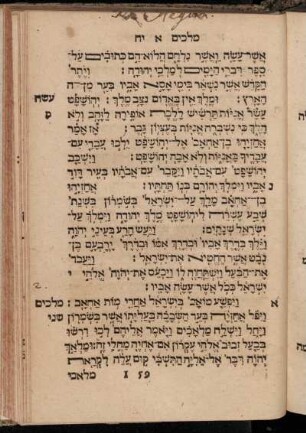 מלכים א יח
אשר עשה ואשר נלחם הלוא הם כתובים על
ספר דברי הימים למלכי יהודה : ויתר
הקדש אשר נשאר בימי אסא אביו בער מן ה
הארץ : ומלך אין באדום נצב מלך : יהושפט
עשה
עשר אניות תרשיש ללכת אופירה לזהב ולא
הלך כי נשברה אניות בעציון גבר : אז אמר
אחזיהו בן אחאב אל יהושפט ילכו עבדי עם
עבדיך באניות ולא אבה יהושפט : וישכב
יהושפט עם אבתיו ויקבר עם אבתיו בעיר דוד
אביו וימלך יהורם בנו תחתיו : אחזיהו
בן אחאב מלך על ישראל בשמרון בשנת
שבע עשרה ליהושפט מלך יהודה וימלך על
ישראל שנתים : ויעש הרע בעיני יהוה
וילך בדרך אביו ובדרך אמו ובדרך ירבעם בן
נבט אשר החטיא את ישראל : ויעבד
את הבעל וישתחוה לו ויכעס את יהוה אלהי
ישראל ככל אשר עשה אביו :
ויפשע מואב בישראל אחרי מות אחאב :
מלכים
שני
ויפל אחזיה בעד השבכה בעליתו אשר בשמרון
ויחל וישלח מלאכים ויאמר אלהם לכו דרשו
בבעל זבוב אלהי עקרון אם אחיה מחלי זה : ומלאך
יהוה דבר אל אליה התשבי קום עלה לקראת
מלאכי
159